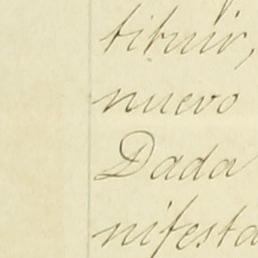 tituir,
nuevo
Dada
nifesta